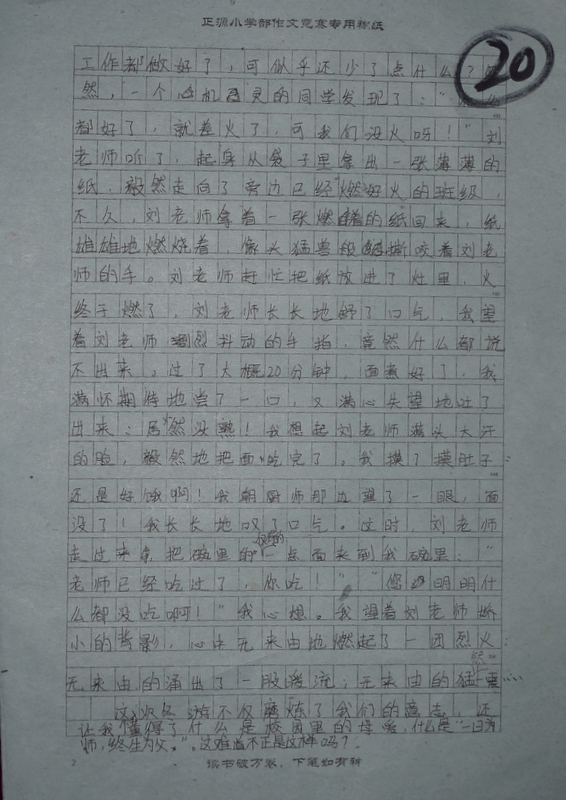 正源小学部作文竞赛专用稿纸
20
工作都做好了，可似乎还少了点什么？
然，一个机灵的同学发现了：“
都好了，就差火了，可我们没火呀！”刘
老师听了，起身从袋子里拿出一张薄薄的
纸，毅然走向了旁边已经燃好火的班级，
不久，刘老师拿着一张燃着的纸回来，纸
雄雄地燃烧着，像头猛兽般撕咬着刘老
师的手。刘老师赶忙把纸放进了灶里，火
终于燃了，刘老师长长地舒了口气，我望
着刘老师剧烈抖动的手指，竟然什么都说
不出来。过了大概20分钟，面煮好了，我
满怀期待地尝了一口，又满心失望地吐了
出来：居然没熟！我想起刘老师满头大汗
的脸，毅然地把面吃完了。我摸了摸肚子：
还是好饿啊！我朝厨师那边望了一眼，面
没了！我长长地叹了口气。这时，刘老师
走过来拿把碗里的仅有的一点面夹到我碗里：“
老师已经吃过了，你吃！”“您明明什
么都没吃啊！”我心想。我望着刘老师娇
小的背影，心中无来由地燃起了一团烈火；
无来由的涌出了一股暖流；无来由的猛一震……
这次冬游不仅锻炼了我们的意志，还
让我懂得了什么是校园里的母爱，什么是“一日为
师，终生为父。”。这难道不正是这样吗？
2
读书破万卷，下笔如有神